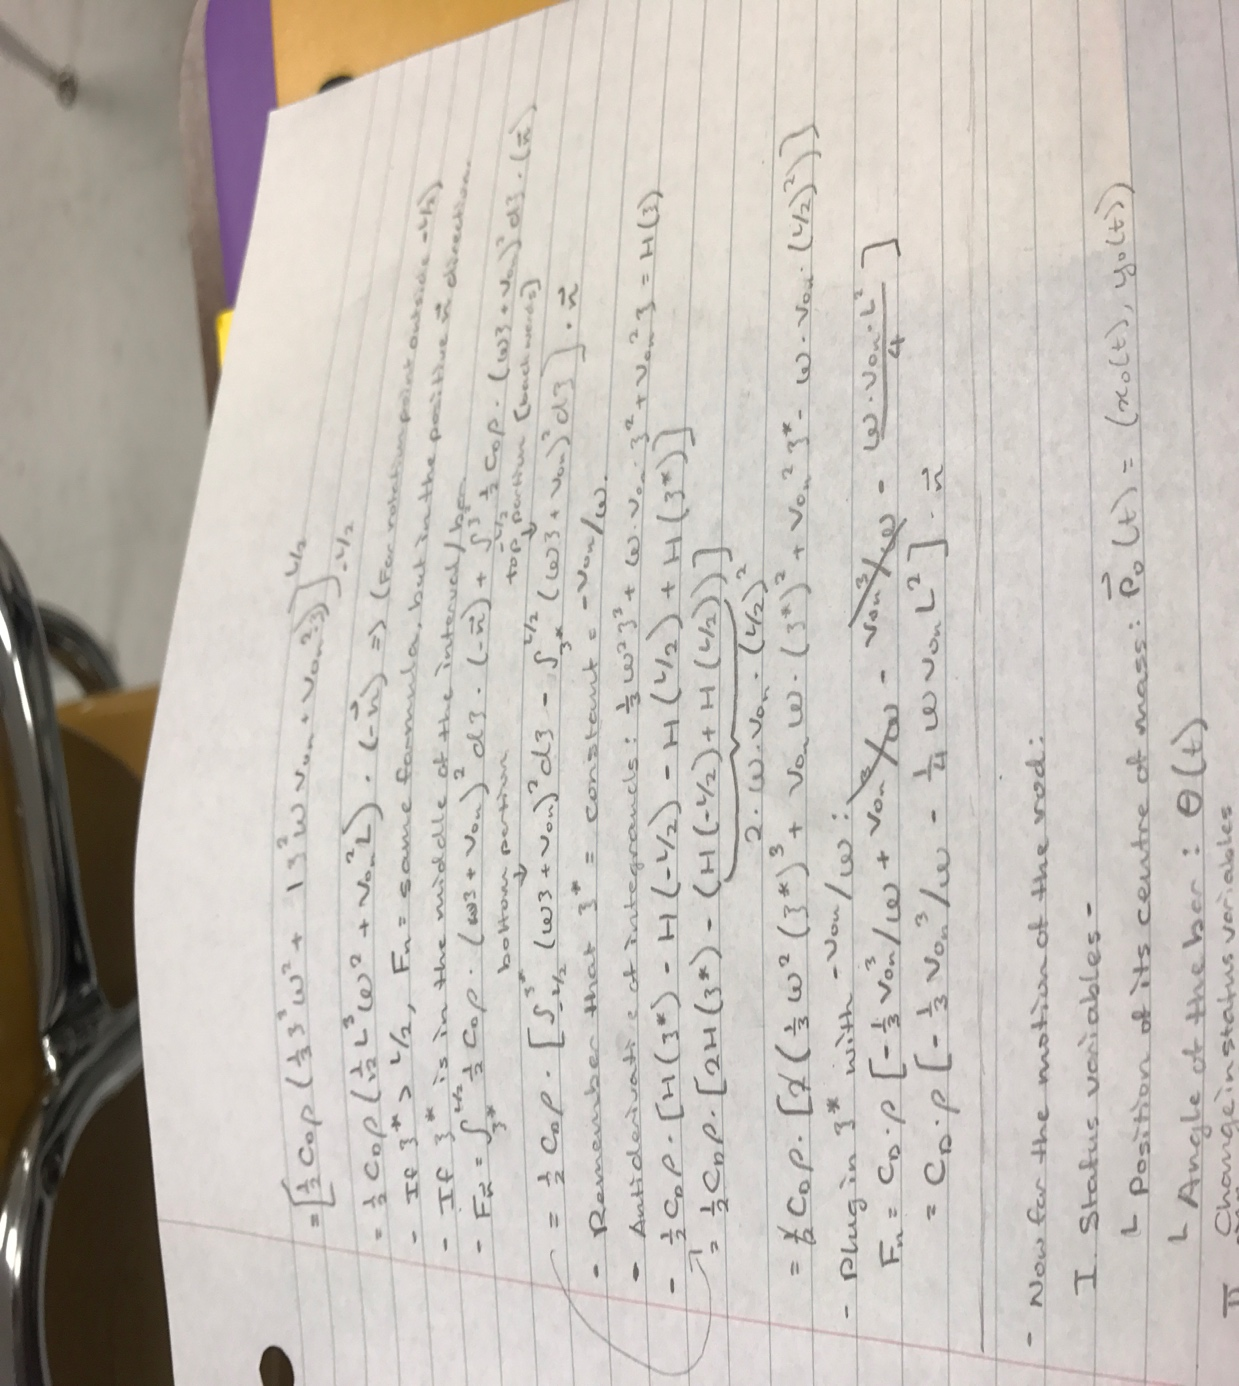 = [½ C_Dρ (⅓ ʒ³ω² + 1ʒ² ω v_on + v_on²ʒ)]^{L/2}_{-L/2}
= ½ C_Dρ (1/12 L³ω² + v_on² L) · (-n⃗) => (For rotation point outside -L/2)
- If ʒ* > L/2, F_n = same formula, but in the positive n⃗ direction.
- If ʒ* is in the middle of the interval/bar
- F_n = ∫_{ʒ*}^{L/2} ½ C_Dρ · (ωʒ + v_on)² dʒ · (-n⃗) + ∫_{-L/2}^{ʒ*} ½ C_Dρ · (ωʒ + v_on)² dʒ · (n⃗)
bottom portion top portion (backwards)
= ½ C_Dρ · [∫_{-L/2}^{ʒ*} (ωʒ + v_on)² dʒ - ∫_{ʒ*}^{L/2} (ωʒ + v_on)² dʒ] · n⃗
- Remember that ʒ* = constant = -v_on/ω.
- Antiderivative of integrands: ⅓ ω²ʒ³ + ω · v_on · ʒ² + v_on² ʒ = H(ʒ)
- ½ C_Dρ · [H(ʒ*) - H(-L/2) - H(L/2) + H(ʒ*)]
= ½ C_Dρ · [2H(ʒ*) - (H(-L/2) + H(L/2))]
2 · ω · v_on · (L/2)²
= ½ C_Dρ · [2(⅓ ω² (ʒ*)³ + v_on ω · (ʒ*)² + v_on² ʒ* - ω · v_on · (L/2)²)]
- Plug in ʒ* with -v_on/ω:
F_n = C_D · ρ [-⅓ v_on³/ω + v_on³/ω - v_on³/ω - ω · v_on · L²/4]
= C_D · ρ [-⅓ v_on³/ω - ¼ ω v_on L²] · n⃗
- Now for the motion of the rod:
I. Status variables -
L Position of its centre of mass: P⃗₀(t) = (x₀(t), y₀(t))
L Angle of the bar: θ(t)
II Change in status variables